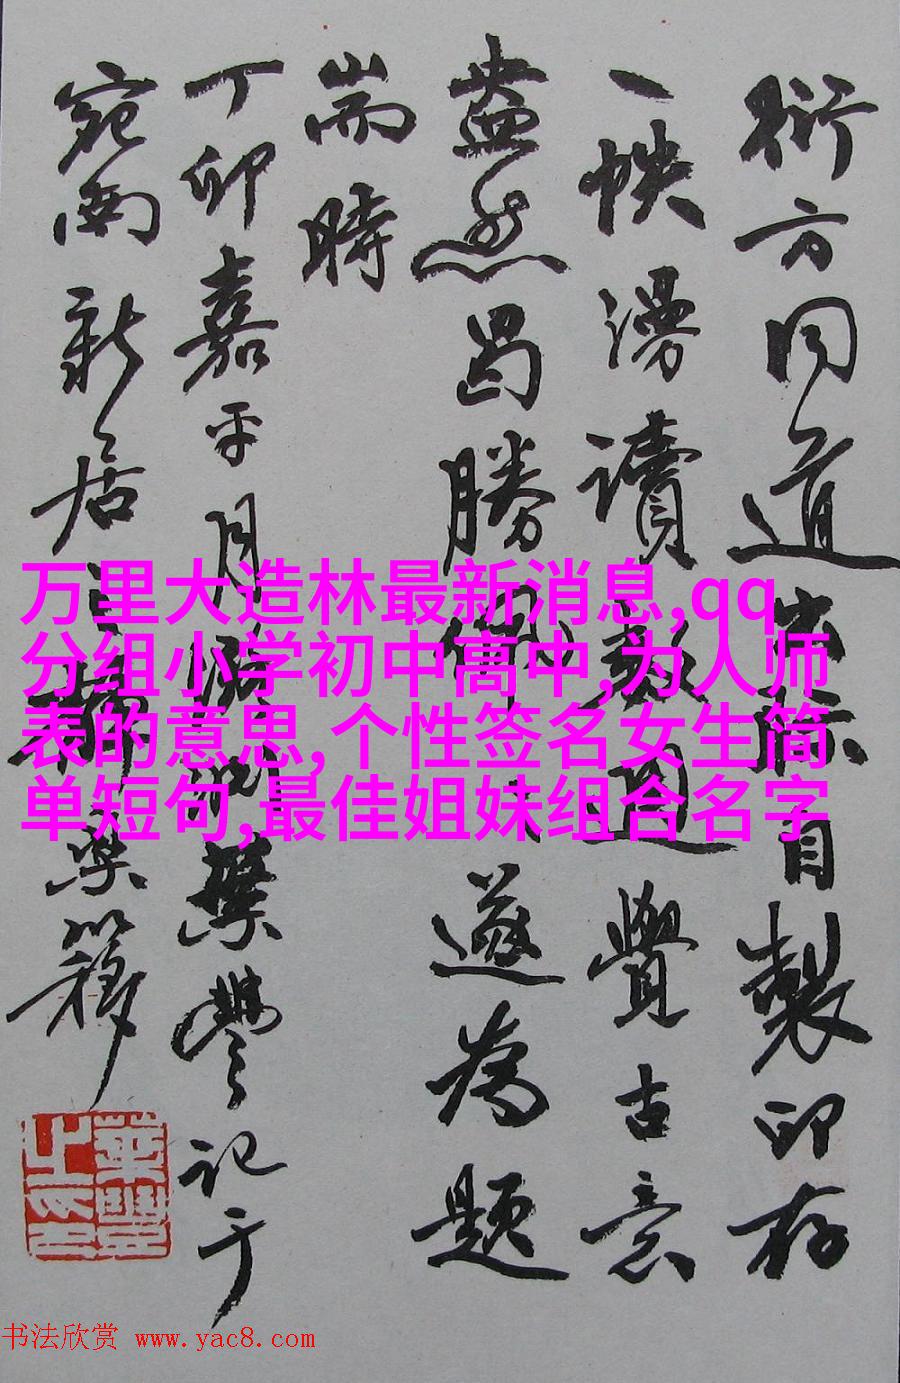 衍方同道出自製印存
一帙漫讀數過覺古意
盎然曷勝遂為題
耑時
丁卯嘉平月葉豐记于
宛南新居之樂簃
万里大造林最新消息,qq
分组小学初中高中,为人师
表的意思,个性签名女生简
单短句,最佳姐妹组合名字
书法欣赏 www.yac8.com